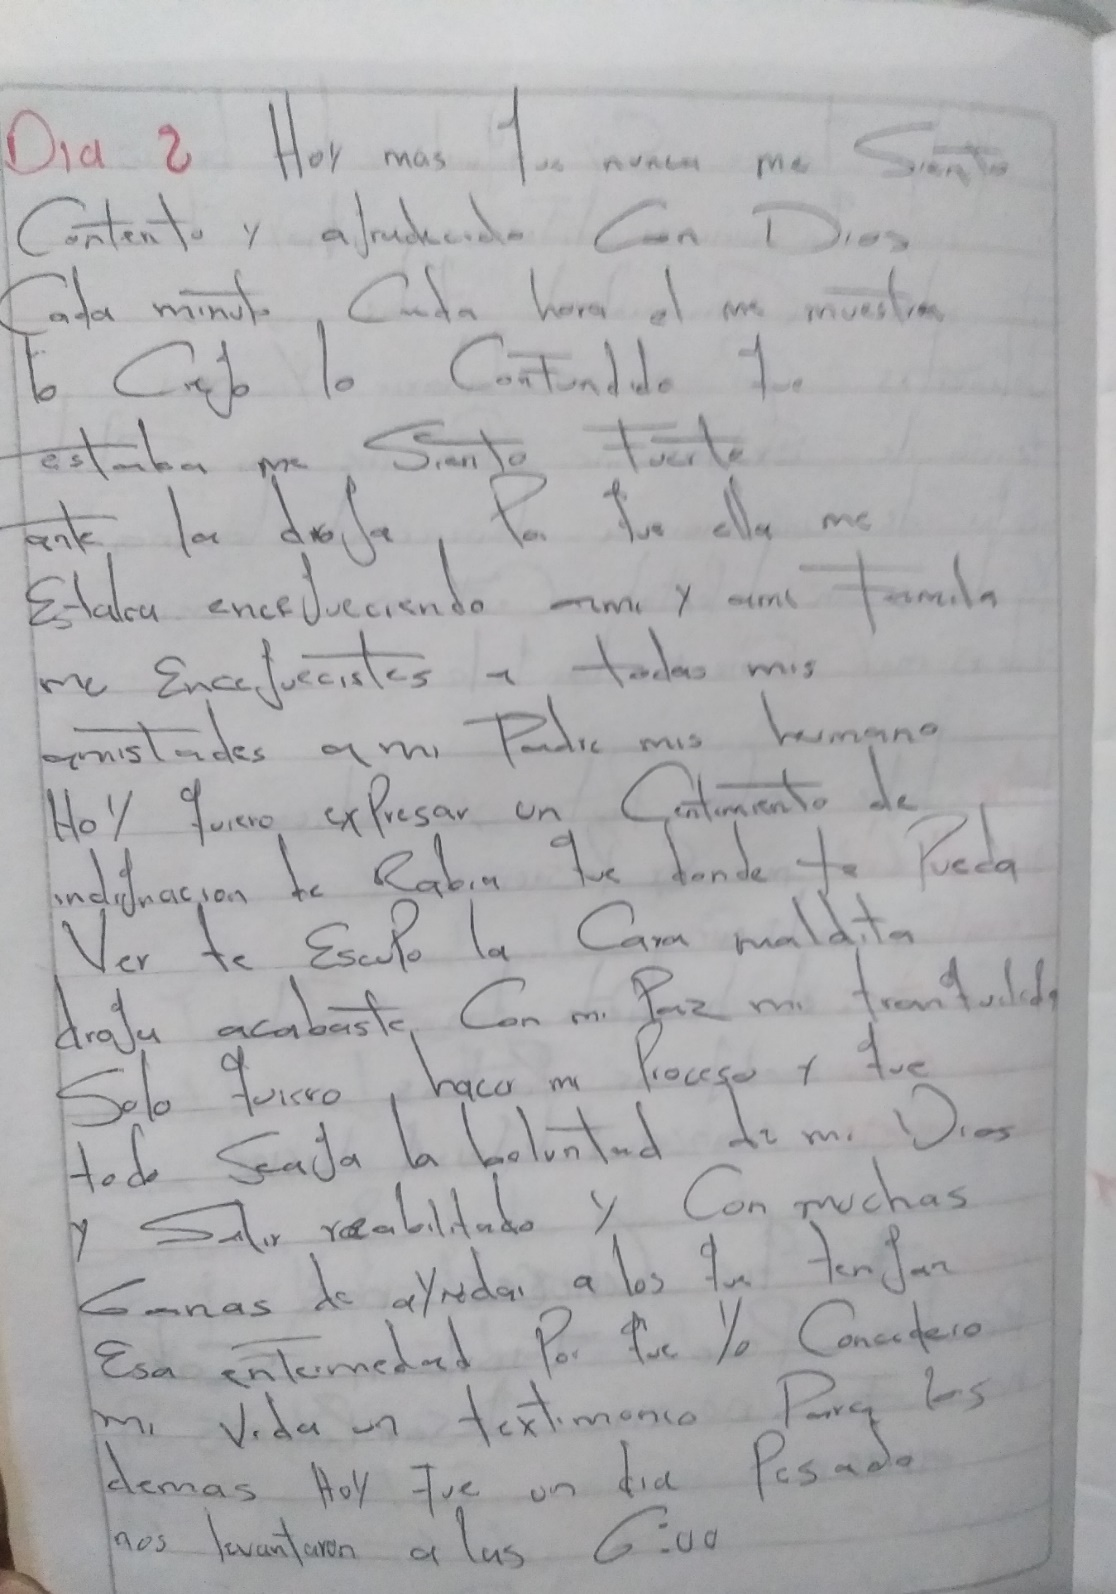 Dia 2 Hoy mas que nunca me Siento
Contento y agradecido Con Dios
Cada minuto, Cada hora el me muestra
lo Ciego lo Confundido que
estaba me Siento Fuerte
ante la droga, Por que ella me
Estaba encegueciendo ami y ami Familia
me Enceguecistes a todas mis
amistades a mi Padre mis hermano
Hoy quiero expresar un Centimiento de
indignacion de Rabia que donde te Pueda
Ver te Escupo la Cara maldita
droga acabaste Con mi Paz mi tranquilidad
Solo quiero, hacer mi Proceso y que
todo Seaga la boluntad de mi Dios
y Salir reabilitado y Con muchas
Ganas de ayudar a los que tengan
Esa enfermedad Por que yo Concidero
mi Vida un textimonio Para los
demas Hoy Fue un dia Pesado
nos levantaron a las 6:00